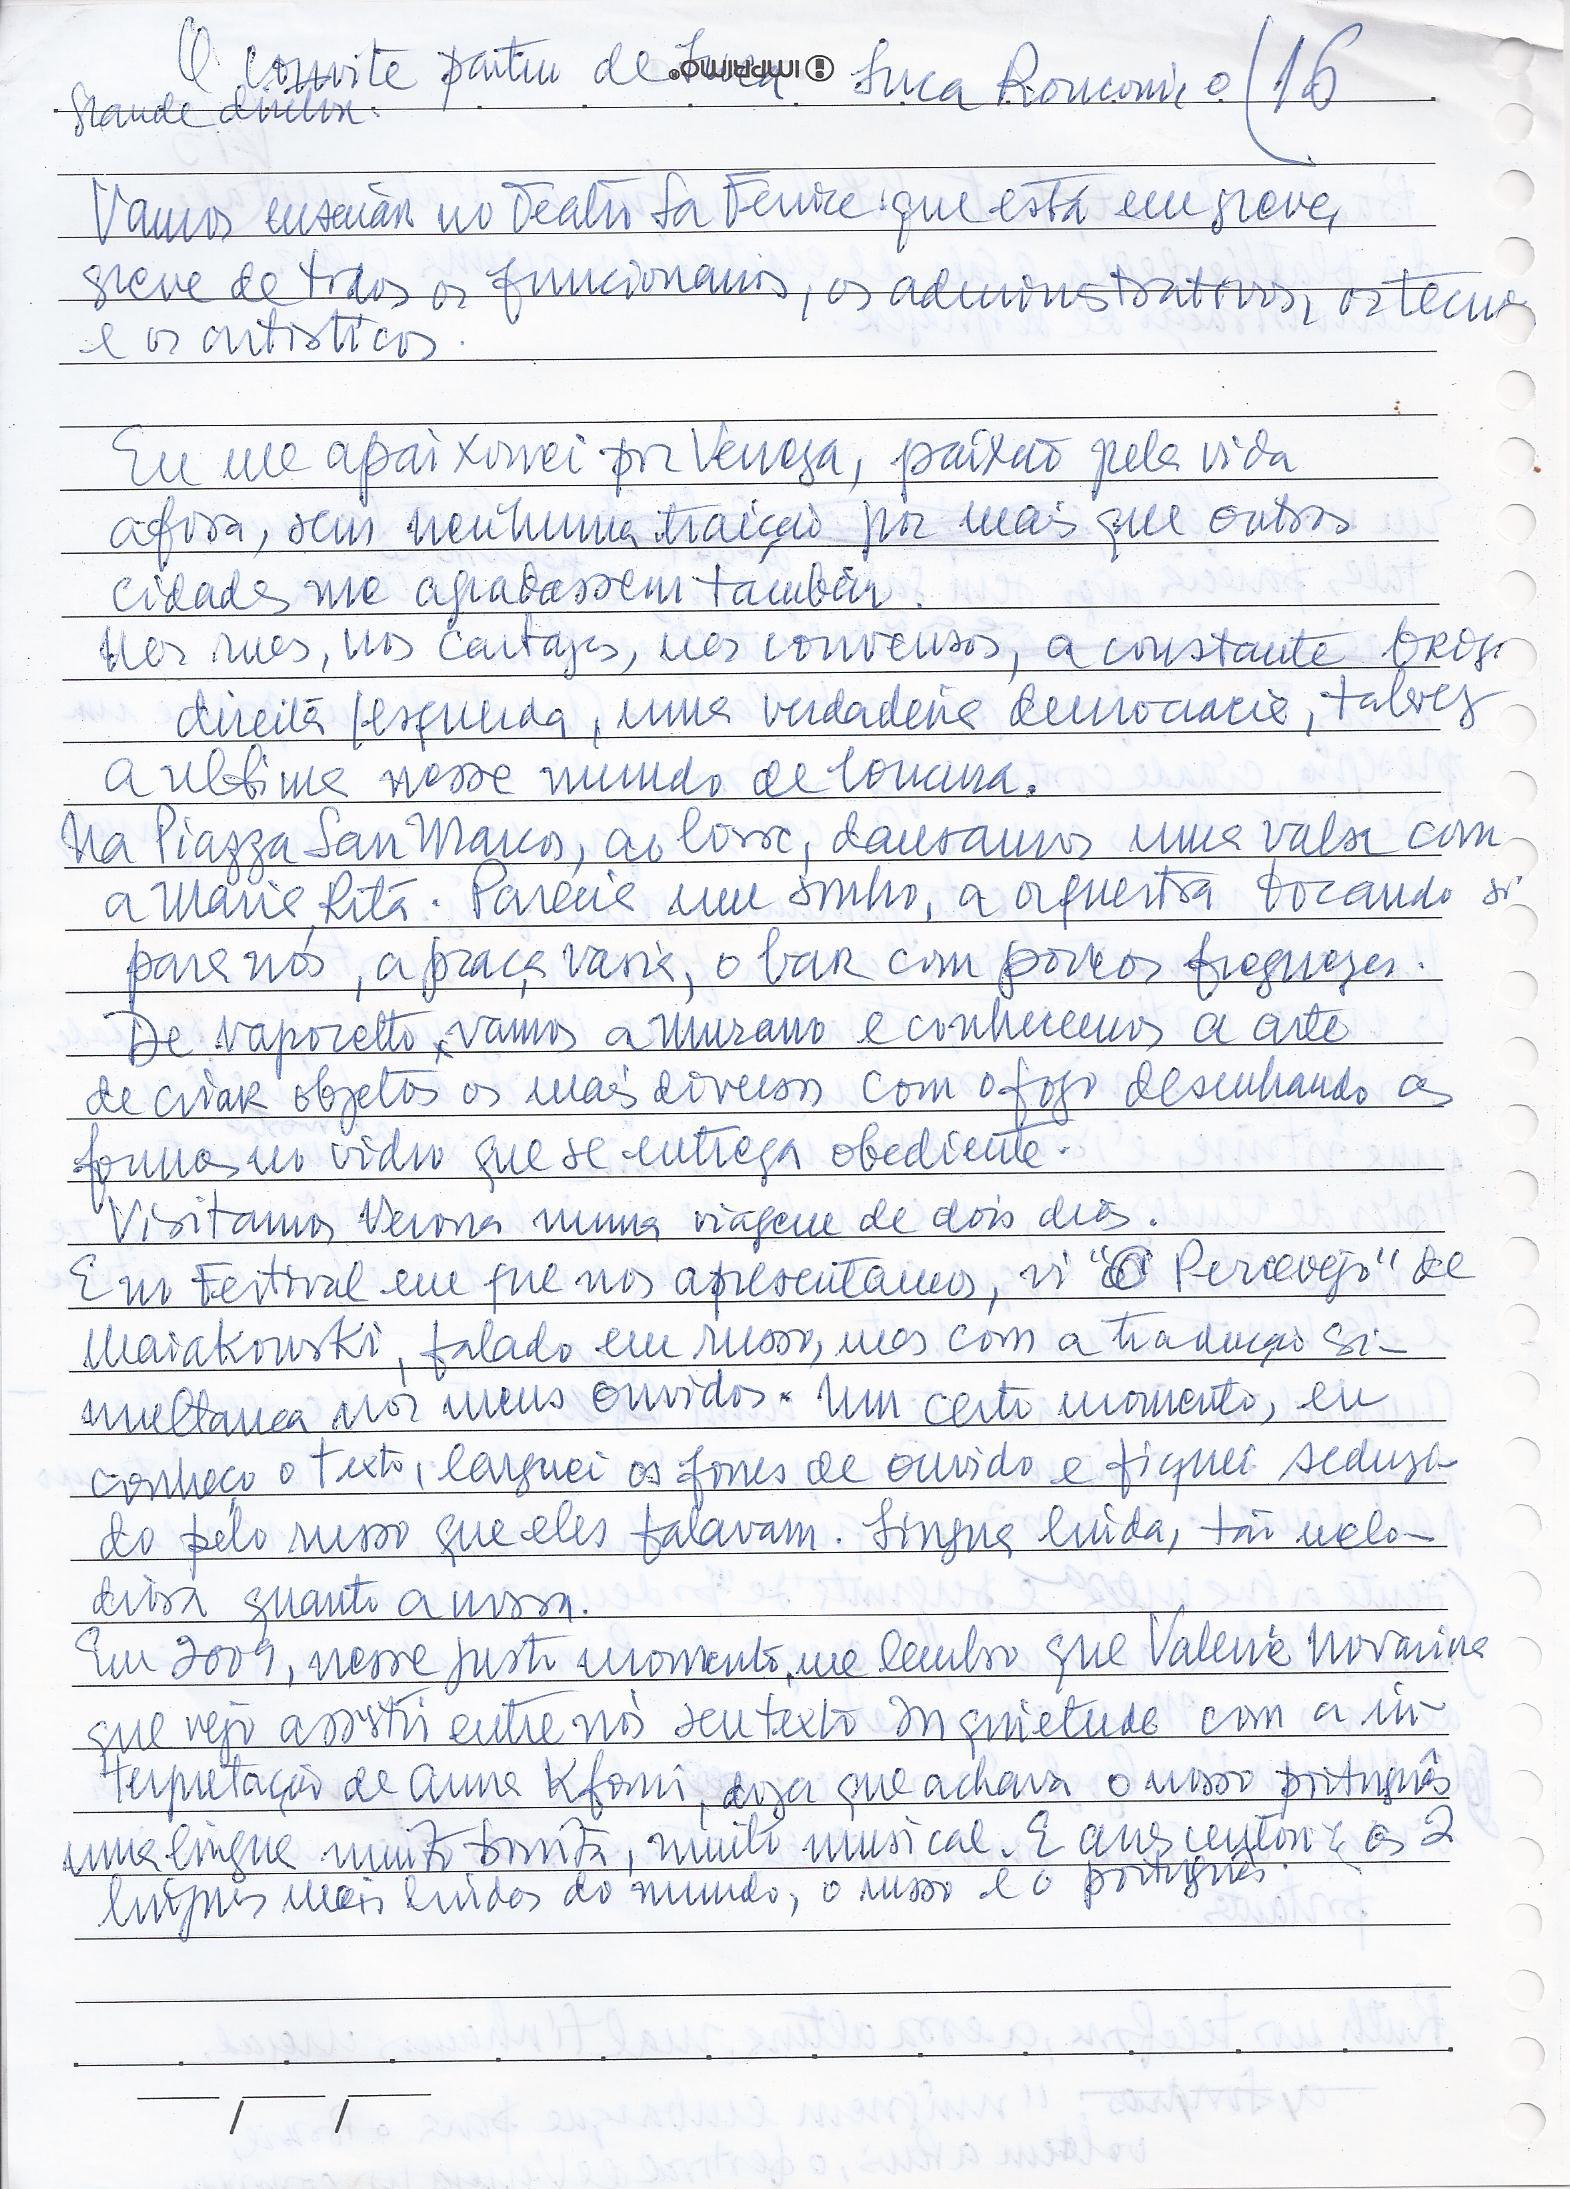 O convite partiu de Luca Luca Ronconi, o (16
grande diretor.
imprimo
Vamos ensaiar no Teatro La Fenice que está em greve,
greve de todos os funcionarios, os administrativos, os tecni
e os artisticos.
Eu me apaixonei por Veneza, paixão pela vida
afora, sem nenhuma traição por mais que outras
cidades me agradassem também.
Nas ruas, nos cartazes, nas conversas, a constante briga
direita/esquerda, uma verdadeira democracia, talvez
a ultima nesse mundo de loucura.
Na Piazza San Marco, dansamos uma valsa com
a Maria Rita. Parecia um sonho, a orquestra tocando só
para nós, a praça vazia, o bar com poucos freguezes.
De vaporetto, vamos a Murano e conhecemos a arte
de criar objetos os mais diversos com o fogo desenhando as
formas no vidro que se entrega obediente.
Visitamos Verona numa viagem de dois dias.
E no Festival em que nos apresentamos, vi "O Percevejo" de
Maiakowski, falado em russo, mas com a tradução si-
multanea nos meus ouvidos. Um certo momento, eu
conheço o texto, larguei os fones de ouvido e fiquei seduzi-
do pelo russo que eles falavam. Lingua linda, tão melo-
diosa quanto a nossa.
Em 2009, nesse justo momento, me lembro que Valerie Novarina
que vejo assistir entre nós seu texto Inquietude com a in-
terpretação de Anna Kfouri, dizia que achava o nosso português
uma lingua muito bonita, muito musical. E as 2
linguas mais lindas do mundo, o russo e o português.